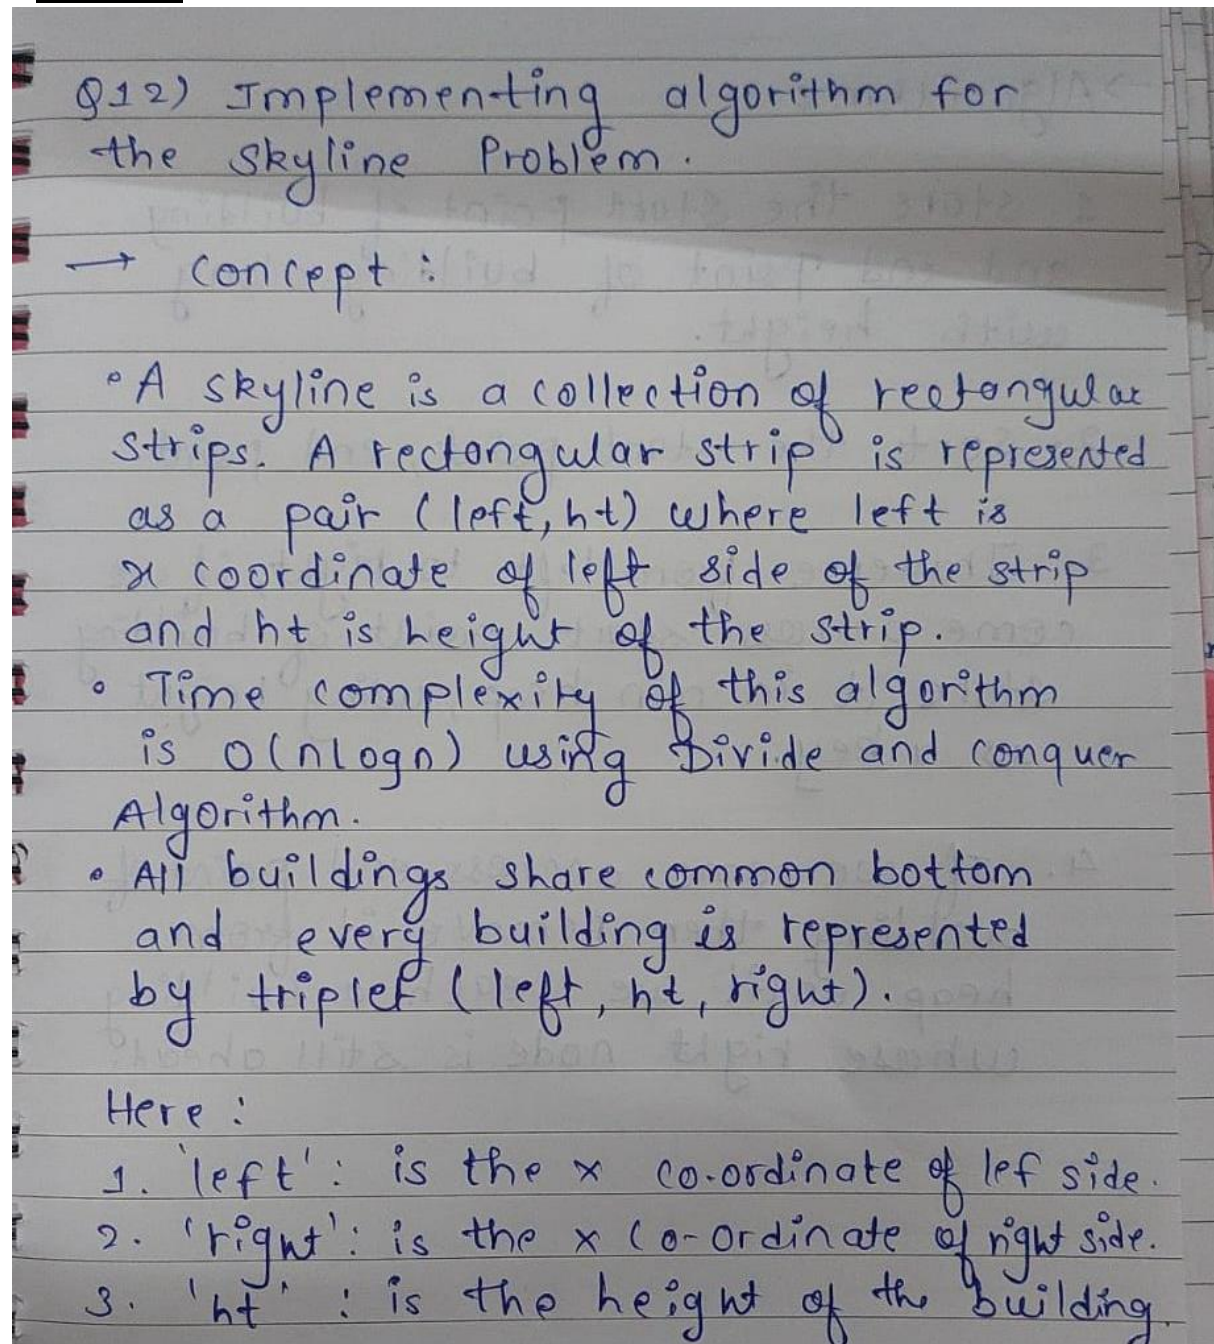 Q12) Implementing algorithm for
the Skyline Problem.
→ concept :
• A skyline is a collection of rectangular
strips. A rectangular strip is represented
as a pair (left, ht) where left is
x coordinate of left side of the strip
and ht is height of the strip.
• Time complexity of this algorithm
is O(nlogn) using Divide and conquer
Algorithm.
• All buildings share common bottom
and every building is represented
by triplet (left, ht, right).
Here :
1. 'left' : is the x co-ordinate of lef side.
2. 'right' : is the x co-ordinate of right side.
3. 'ht' : is the height of the building.